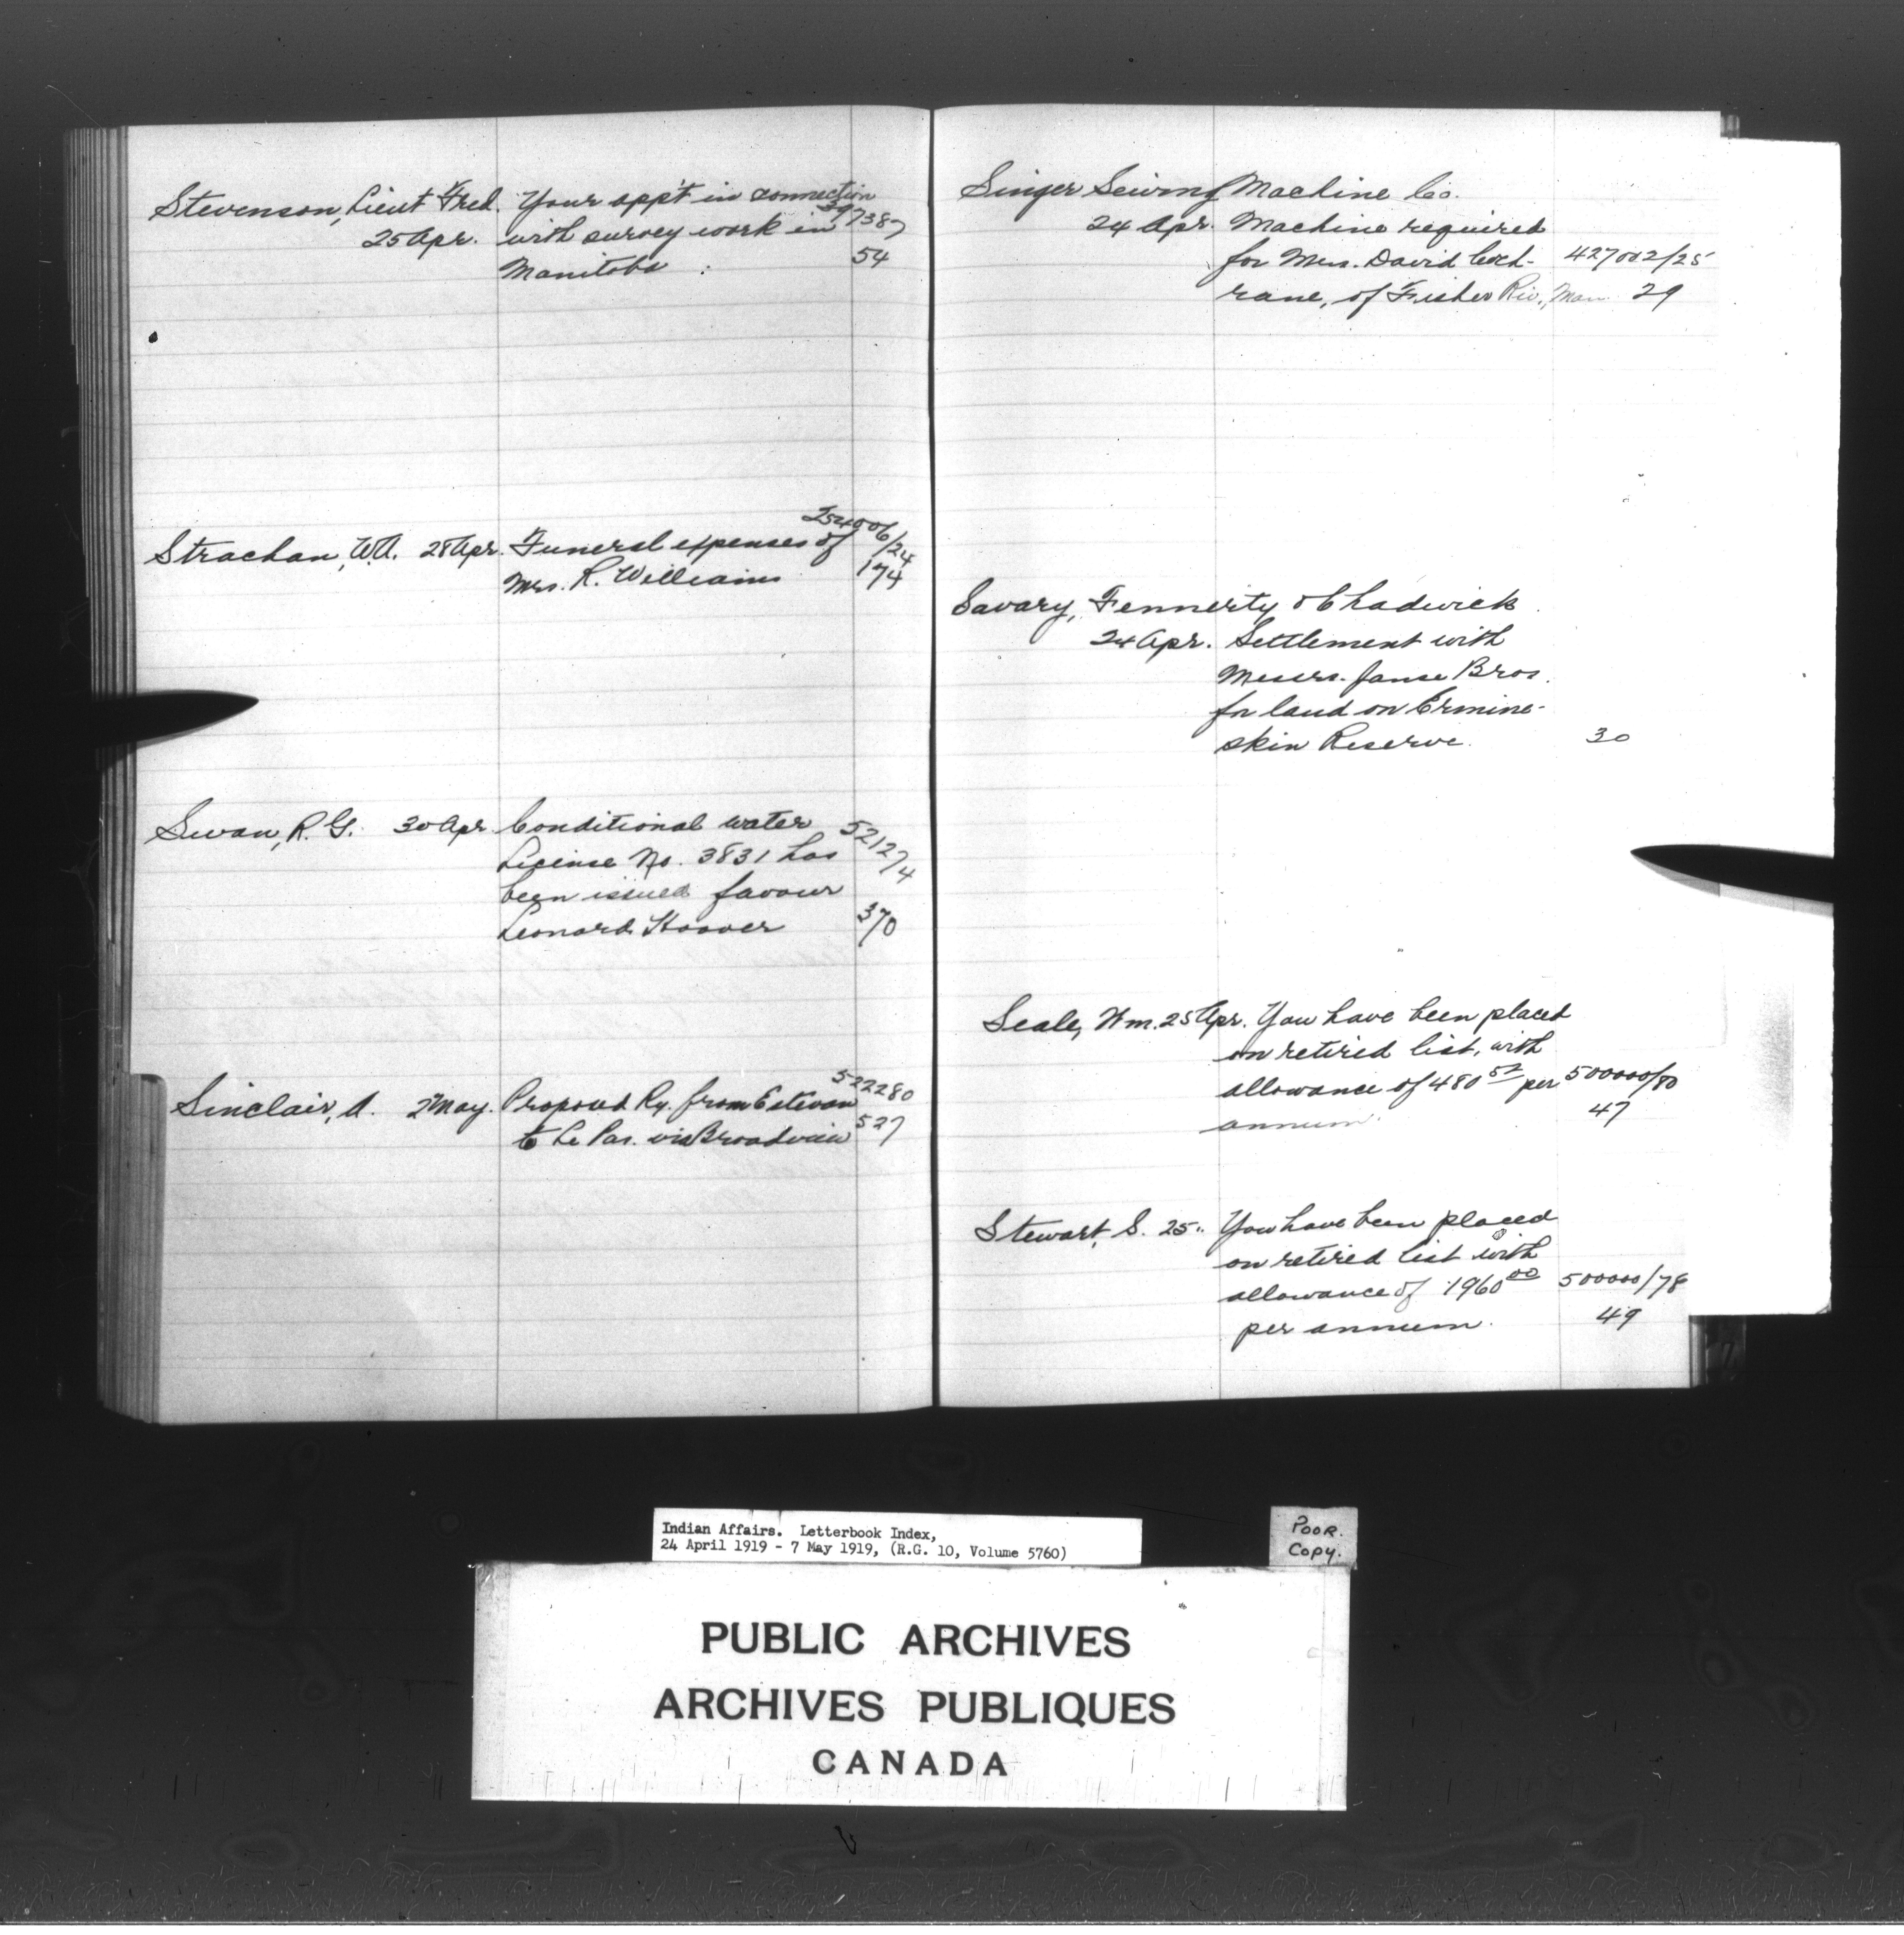 Stevenson, Lieut Fred. Your app't in connection
25 Apr. with survey work in 397387
Manitoba 54
Strachan, W.A. 28 Apr. Funeral expenses of 254006/24
Mrs. R. Williams 174
Swan, R. G. 30 Apr. Conditional water 521274
License No. 3831 has
been issued favour
Leonard Hoover 370
Sinclair, A. 2 May. Proposed Ry. from Estevan 522280
to Le Pas. via Broadview 527
Singer Sewing Machine Co.
24 Apr. Machine required
for Mrs. David Coch- 427002/25
rane, of Fisher Riv., Man 29
Savary, Fennerty & Chadwick
24 Apr. Settlement with
Messrs. Janse Bros.
for land on Ermine-
skin Reserve. 30
Seale, Wm. 25 Apr. You have been placed
on retired list, with
allowance of 480 52 per 500000/80
annum. 47
Stewart, S. 25 " You have been placed
on retired list with
allowance of 1960 00 500000/78
per annum. 49
Indian Affairs. Letterbook Index,
24 April 1919 - 7 May 1919, (R.G. 10, Volume 5760)
POOR.
Copy.
PUBLIC ARCHIVES
ARCHIVES PUBLIQUES
CANADA